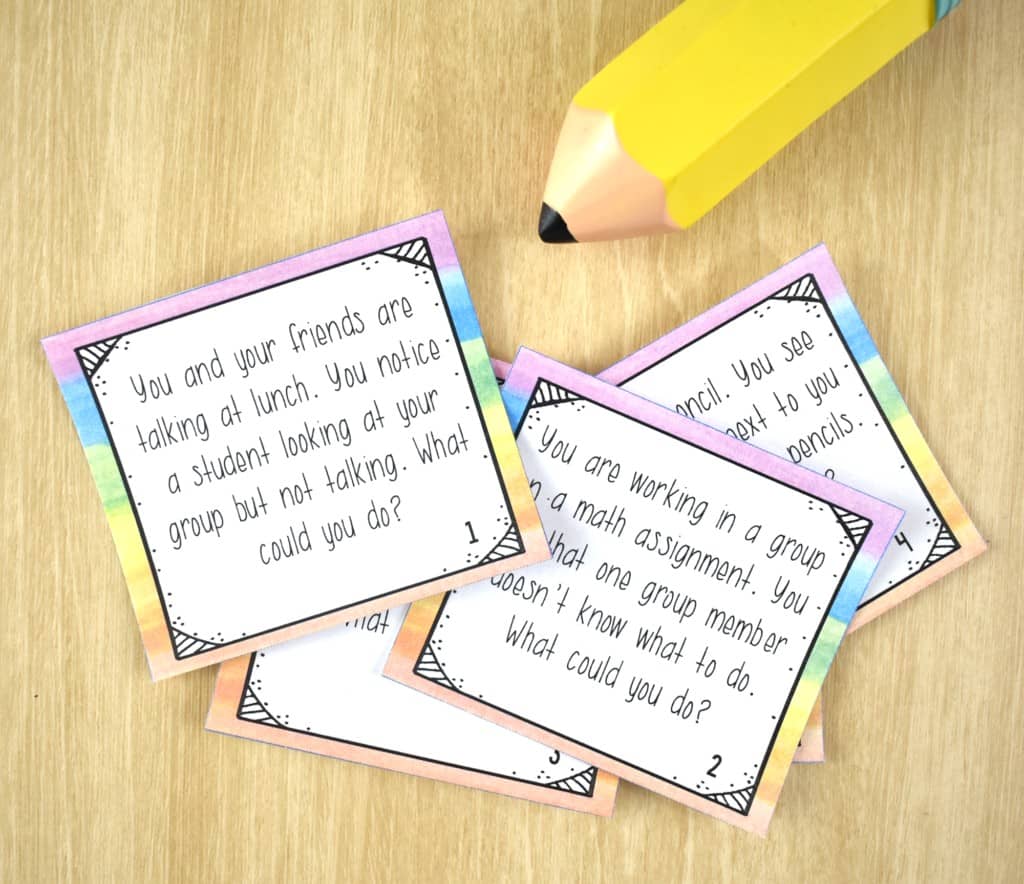 You and your friends are
talking at lunch. You notice
a student looking at your
group but not talking. What
could you do?
1
You are working in a group
a math assignment. You
that one group member
doesn't know what to do.
What could you do?
2
You see
next to you
pencils.
?
4
3